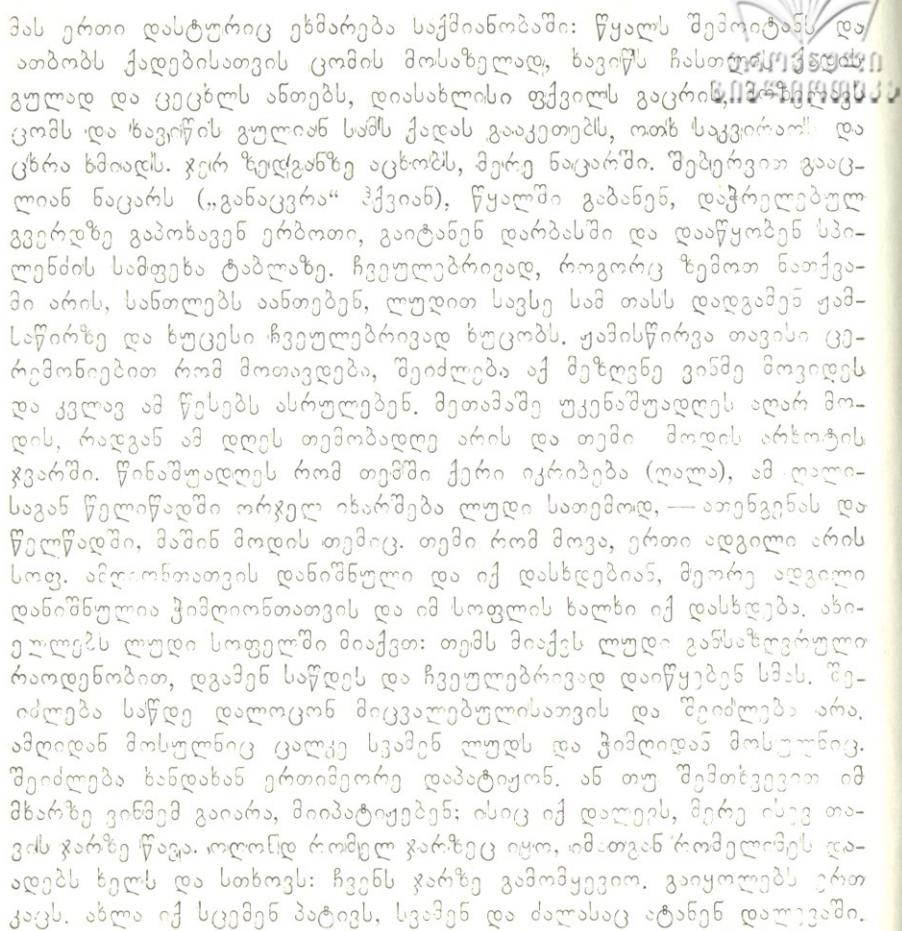 მას ერთი დასტურიც ეხმარება საქმიანობაში: წყალს შემოიტანს და
ათბობს ქადებისათვის ცომის მოსაზელად, ხავიწს ჩასთლის ქადის
გულად და ცეცხლს ანთებს, დიასახლისი ფქვილს გაცრის, მოზელავს
ცომს და ხავიწის გულიან სამს ქადას გააკეთებს, ოთხ საკვირაოს და
ცხრა ხმიადს. ჯერ ზედგანზე აცხობს, მერე ნაცარში. შებერვით გააც-
ლიან ნაცარს („განაცვრა“ ჰქვიან), წყალში გაბანენ, დაჭრელებულ
გვერდზე გაპოხავენ ერბოთი, გაიტანენ დარბასში და დააწყობენ სპი-
ლენძის სამფეხა ტაბლაზე. ჩვეულებრივად, როგორც ზემოთ ნათქვა-
მი არის, სანთლებს აანთებენ, ლუდით სავსე სამ თასს დადგამენ ჟამ-
საწირზე და ხუცესი ჩვეულებრივად ხუცობს. ჟამისწირვა თავისი ცე-
რემონიებით რომ მოთავდება, შეიძლება აქ მეზღვნე ვინმე მოვიდეს
და კვლავ ამ წესებს ასრულებენ. მეთამაშე უკენაშუადღეს აღარ მო-
დის, რადგან ამ დღეს თემობადღე არის და თემი მოდის არხოტის
ჯვარში. წინაშუადღეს რომ თემში ქერი იკრიბება (ღალა), ამ ღალი-
საგან წელიწადში ორჯელ იხარშება ლუდი სათემოდ, — ათენგენას და
წელწადში. მაშინ მოდის თემიც. თემი რომ მოვა, ერთი ადგილი არის
სოფ. ამღიონთათვის დანიშნული და იქ დასხდებიან, მეორე ადგილი
დანიშნულია ჭიმღიონთათვის და იმ სოფლის ხალხი იქ დასხდება. ახი-
ელლებს ლუდი სოფელში მიაქვთ: თემს მიაქვს ლუდი განსაზღვრული
რაოდენობით, დგამენ საწდეს და ჩვეულებრივად დაიწყებენ სმას. შე-
იძლება საწდე დალოცონ მიცვალებულისათვის და შეიძლება არა.
ამღიდან მოსულნიც ცალკე სვამენ ლუდს და ჭიმღიდან მოსულნიც.
შეიძლება ხანდახან ერთიმეორე დაპატიჟონ. ან თუ შემთხვევით იმ
მხარზე ვინმემ გაიარა, მიიპატიჟებენ; ისიც იქ დალევს, მერე ისევ თა-
ვის ჯარზე წავა. ოღონდ რომელ ჯარზეც იყო, იმათგან რომელიმეს და-
ადებს ხელს და სთხოვს: ჩვენს ჯარზე გამომყევიო. გაიყოლებს ერთ
კაცს. ახლა იქ სცემენ პატივს, სვამენ და ძალასაც ატანენ დალევაში.
ეროვნული
ბიბლიოთეკა